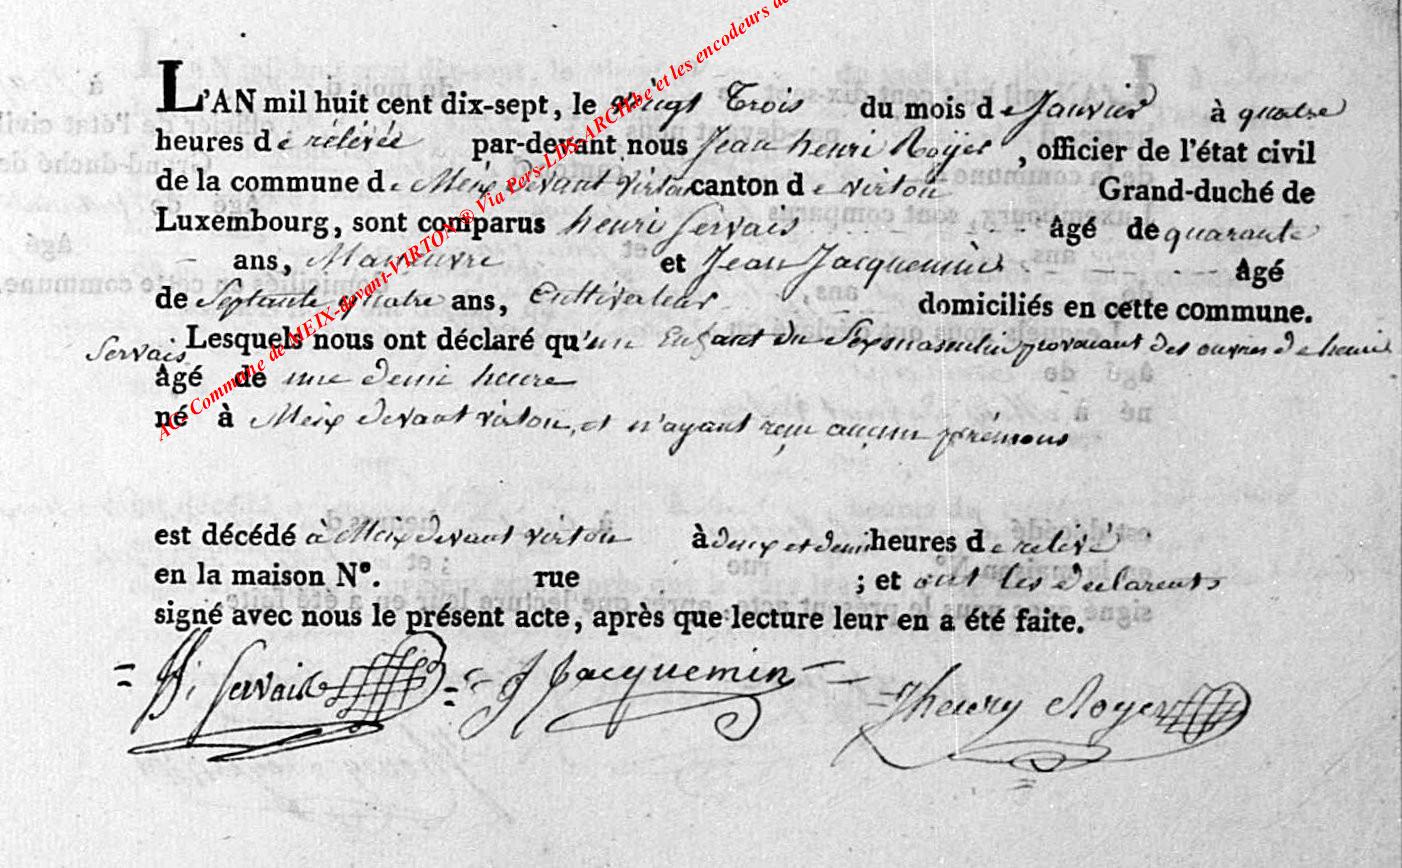 L'AN mil huit cent dix-sept, le vingt Trois du mois de Janvier à quatre
heures de rélévée par-devant nous Jean henri Royer, officier de l'état civil
de la commune de Meix devant virton canton de virton Grand-duché de
Luxembourg, sont comparus henri Servais âgé de quarante
ans, Maneuvre et Jean Jacquemin âgé
de Septante quatre ans, Cultivateur domiciliés en cette commune.
Lesquels nous ont déclaré qu'un Enfant du Sexe masculin provenant des ouvres de henri
Servais
âgé de une demi heure
né à Meix devant virton, et n'ayant reçu aucun prénoms
est décédé à Meix devant virton à deux et demi heures de relevé
en la maison N°. rue ; et ont les declarents
signé avec nous le présent acte, après que lecture leur en a été faite.
= H; Servais = J Jacquemin — = Jhenry Royer
AC. Commune de MEIX-devant-VIRTON ® Via Pers-LDS-ARCH.be et les encodeurs de